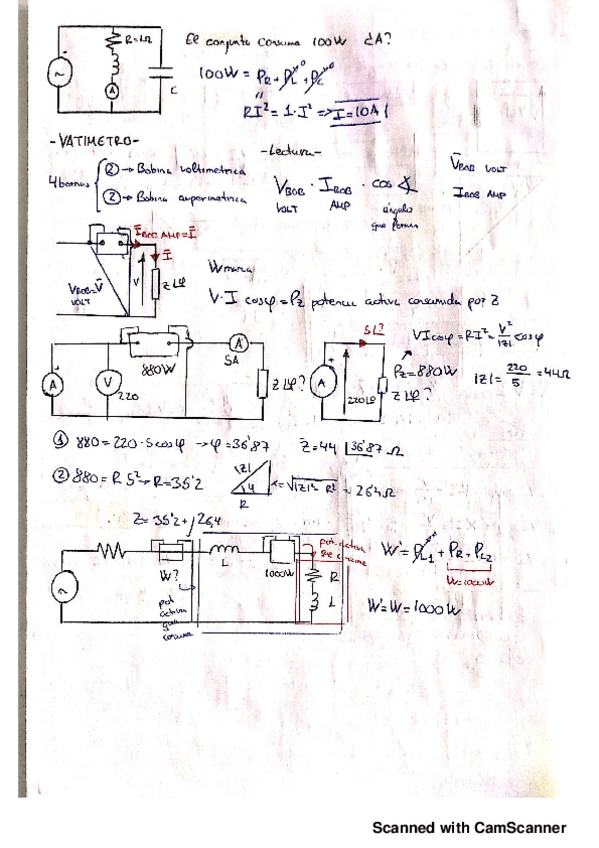 R=1Ω
El conjunto consume 100W ¿A?
100W = P_R + P_L + P_C
A
C
RI² = 1·I² => I=10A
-VATIMETRO-
4 bornas
② → Bobina voltimetrica
② → Bobina amperimetrica
-Lectura-
V_BOB · I_BOB · cos ∡
VOLT AMP ángulo
que forman
V̄_BOB VOLT
Ī_BOB AMP
Ī_BOB AMP = Ī
Ī
V_BOB = V̄
VOLT
V
Z Lφ
W marca
V·I cosφ = P_Z potencia activa consumida por Z
A
V
220
880W
A
5A
Z Lφ?
5L?
A
220 Lφ
Z Lφ?
VI cosφ = RI² = V²/|Z| cosφ
P_Z = 880W
|Z| = 220/5 = 44Ω
① 880 = 220·5 cosφ → φ = 36'87
Z̄ = 44 |36'87 Ω
② 880 = R 5² → R = 35'2
|Z|
φ
R
X = √|Z|² - R² = 26'4 Ω
Z = 35'2 + j 26,4
W?
L
1000W
pot. activa
que consume
R
L
pot
activa
que
consume
W' = P_L1 + P_R + P_L2
W=1000W
W' = W = 1000W
Scanned with CamScanner